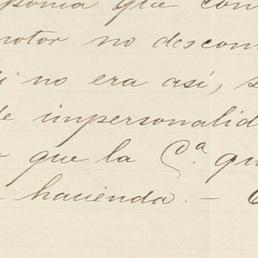 ponia que con
motor no descon
i no era así, s
e impersonalid
que la C.ª qu
hacienda. -